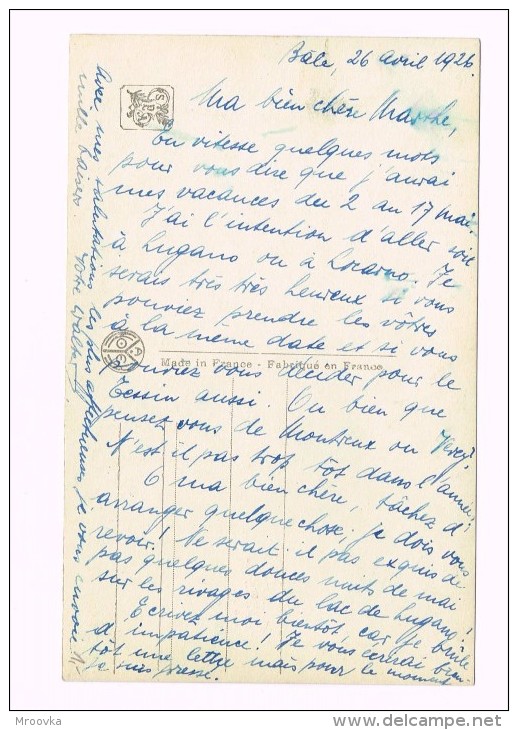 Bâle, 26 avril 1926.
Ma bien chère Marthe,
En vitesse quelques mots
pour vous dire que j'aurai
mes vacances du 2 au 17 mai.
J'ai l'intention d'aller soit
à Lugano ou à Locarno. Je
serais très très heureux si vous
pouviez prendre les vôtres
à la même date et si vous
Made in France - Fabriqué en France
pouviez vous décider pour le
Tessin aussi. Ou bien que
pensez vous de Montreux ou Vevey?
N'est il pas trop tôt dans l'année?
O ma bien chère, tâchez d'
arranger quelque chose, je dois vous
revoir! Ne serait il pas exquis de
pas quelques douces nuits de mai
sur les rivages du lac de Lugano!
Ecrivez moi bientôt car je brûle
d'impatience! Je vous écrirai bien-
tôt une lettre mais pour le moment
je suis pressé.
Avec mes salutations les plus affectueuses, je vous envoie
mille baisers
Votre Walther
Mroovka
www.delcampe.net